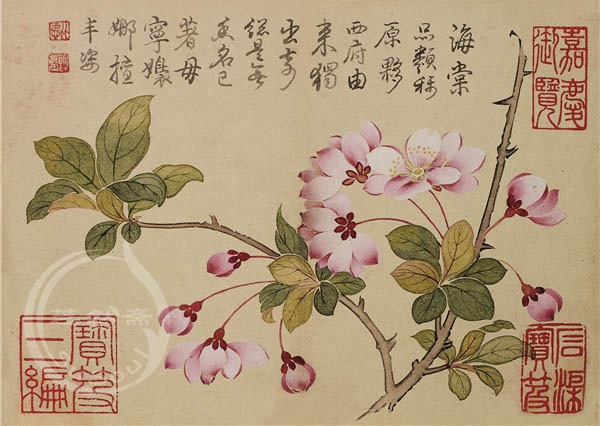 海棠
品類稱
原夥
西府由
来獨
出奇
縱是無
香名已
著毋
寧嬝
娜擅
丰姿
嘉慶
御覽
寶笈
三編
石渠
寶笈